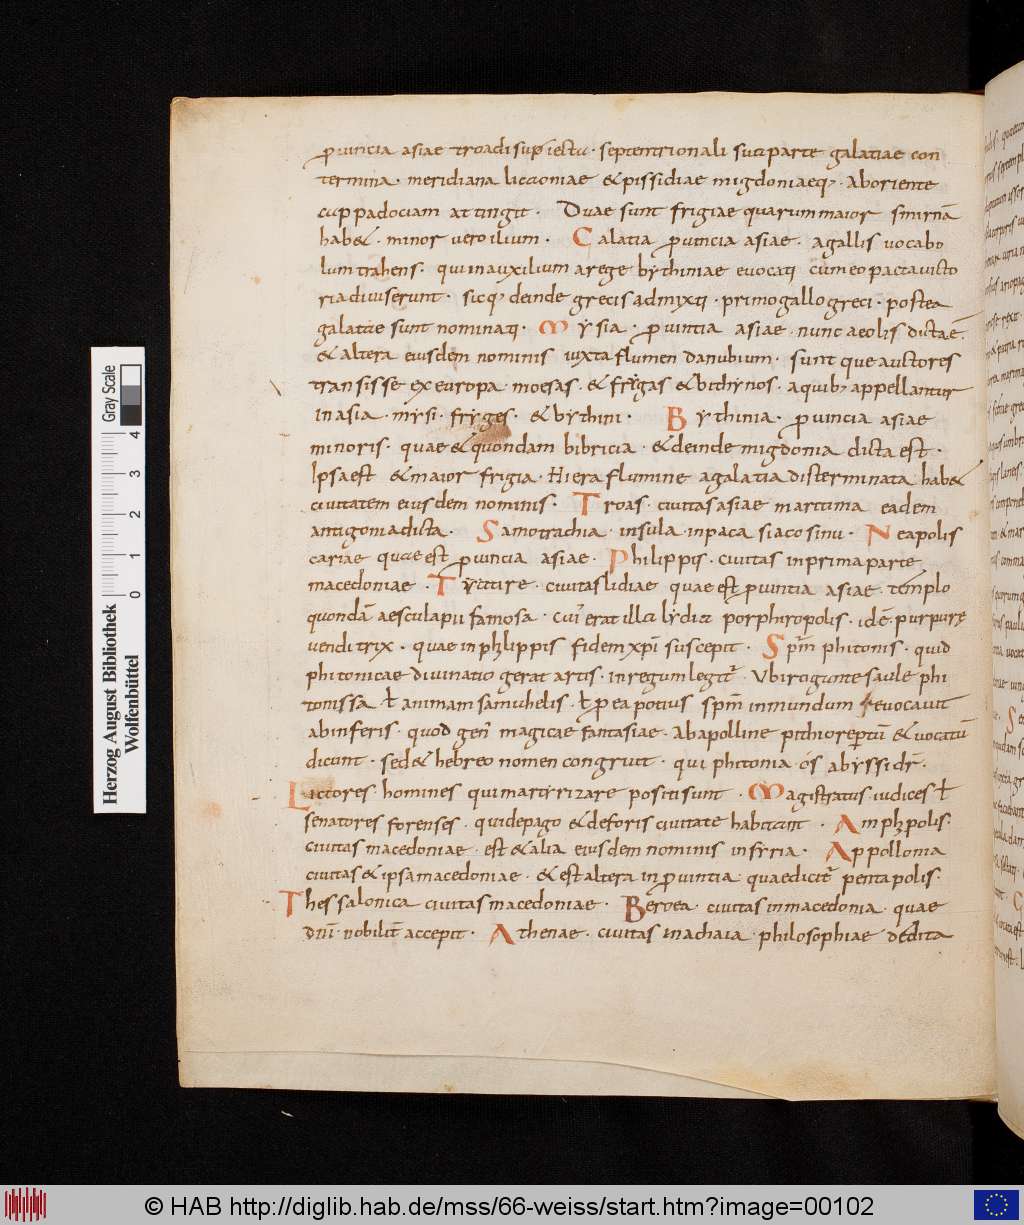 puincia asiae troadi supiecta · septentrionali sua parte galatiae con
termina · meridiana licaoniae & pissidiae migdoniaeq; · aboriente
cappadociam attingit · Duae sunt frigiae quarum maior smirnā
hab& · minor uero ilium · Galatia puincia asiae · agallis uocabo
lum trahens · qui in auxilium arege bythiniae euocati cum eo pacta uicto
ria diuiserunt · sicq; deinde grecis admixti · primo gallogreci · postea
galatae sunt nominati · Mysia · puintia asiae · nunc aeolis dictaē ·
& altera eiusdem nominis iuxta flumen danubium · sunt que auctores
transisse ex europa · moesas · & frygas & bithynos · aquib; appellantur
in asia · mysi · fryges · & bythini · Bythinia · puincia asiae
minoris · quae & quondam bibricia · & deinde migdonia dicta est ·
Ipsa est & maior frigia · Hiera flumine agalatia disterminata hab&
ciuitatem eiusdem nominis · Troas · ciuitas asiae maritima eadem
antigonia dicta · Samotrachia · insula · inpaca siaco sinu · Neapolis
cariae quae est puincia asiae · Philippis · ciuitas inprima parte
macedoniae · Tyatire · ciuitas lidiae quae est puintia asiae · templo
quondā aesculapii famosa · cui' erat illa lydia porphiropolis · idē · purpurę
uenditrix · quae in philippis fidem xpi suscepit · Spm̄ phitonis · quid
phitonicae diuinatio gerat artis · in regum legit~ · Vbi cogunte saule phi
tonissa ł animam samuhelis · ł p ea potius spm̄ inmundum euocauit
abinferis · quod gen' magicae fantasiae · abapolline pithio reptū & uocatū
dicunt · sed & hebreo nomen congruit · qui phitonia · os abyssi dr̄ ·
Lictores · homines qui martyrizare positi sunt · Magistratus · iudices ł
senatores forenses · qui depago & deforis ciuitate habitant · Amphipolis ·
ciuitas macedoniae · est & alia eiusdem nominis in syria · Appollonia
ciuitas & ipsa macedoniae · & est altera in puintia · quae dicit~ pentapolis ·
Thessalonica ciuitas macedoniae · Beroea · ciuitas in macedonia · quae
dn̄i · nobilit~ accepit · Athenae · ciuitas in achaia · philosophiae dedita
Gray Scale
0 1 2 3 4
Herzog August Bibliothek
Wolfenbüttel
© HAB http://diglib.hab.de/mss/66-weiss/start.htm?image=00102